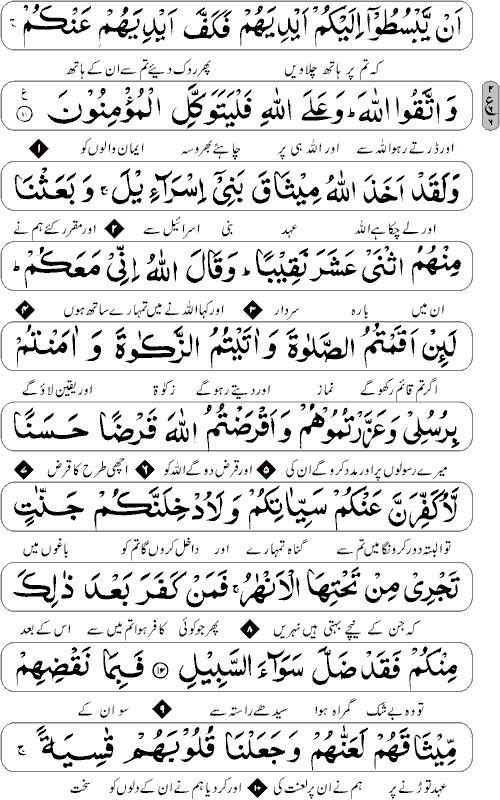 اَنْ يَّبْسُطُوْۤا اِلَيْكُمْ اَيْدِيَهُمْ فَكَفَّ اَيْدِيَهُمْ عَنْكُمْ ۚ
کہ تم پر ہاتھ چلاویں پھر روک دیئے تم سے ان کے ہاتھ
وَ اتَّقُوا اللّٰهَ ؕ وَ عَلَى اللّٰهِ فَلْيَتَوَكَّلِ الْمُؤْمِنُوْنَ ﴿۱۱﴾
اور ڈرتے رہو اللہ سے اور اللہ ہی پر چاہئے بھروسہ ایمان والوں کو ۱
وَ لَقَدْ اَخَذَ اللّٰهُ مِيْثَاقَ بَنِيْۤ اِسْرَآءِيْلَ ۚ وَ بَعَثْنَا
اور لے چکا ہے اللہ عہد بنی اسرائیل سے ۲ اور مقرر کئے ہم نے
مِنْهُمُ اثْنَيْ عَشَرَ نَقِيْبًا ؕ وَ قَالَ اللّٰهُ اِنِّيْ مَعَكُمْ ؕ
ان میں بارہ سردار ۳ اور کہا اللہ نے میں تمہارے ساتھ ہوں ۴
لَىِٕنْ اَقَمْتُمُ الصَّلٰوةَ وَ اٰتَيْتُمُ الزَّكٰوةَ وَ اٰمَنْتُمْ
اگر تم قائم رکھو گے نماز اور دیتے رہو گے زکوٰۃ اور یقین لاؤ گے
بِرُسُلِيْ وَ عَزَّرْتُمُوْهُمْ وَ اَقْرَضْتُمُ اللّٰهَ قَرْضًا حَسَنًا
میرے رسولوں پر اور مدد کرو گے ان کی ۵ اور قرض دو گے اللہ کو ۶ اچھی طرح کا قرض ۷
لَّاُكَفِّرَنَّ عَنْكُمْ سَيِّاٰتِكُمْ وَ لَاُدْخِلَنَّكُمْ جَنّٰتٍ
تو البتہ دور کرونگا میں تم سے گناہ تمہارے اور داخل کروں گا تم کو باغوں میں
تَجْرِيْ مِنْ تَحْتِهَا الْاَنْهٰرُ ۚ فَمَنْ كَفَرَ بَعْدَ ذٰلِكَ
کہ جن کے نیچے بہتی ہیں نہریں ۸ پھر جو کوئی کافر ہوا تم میں سے اس کے بعد
مِنْكُمْ فَقَدْ ضَلَّ سَوَآءَ السَّبِيْلِ ﴿۱۲﴾ فَبِمَا نَقْضِهِمْ
تو وہ بے شک گمراہ ہوا سیدھے راستہ سے ۹ سو ان کے
مِّيْثَاقَهُمْ لَعَنّٰهُمْ وَ جَعَلْنَا قُلُوْبَهُمْ قٰسِيَةً ۚ
عہد توڑنے پر ہم نے ان پر لعنت کی ۱۰ اور کر دیا ہم نے ان کے دلوں کو سخت